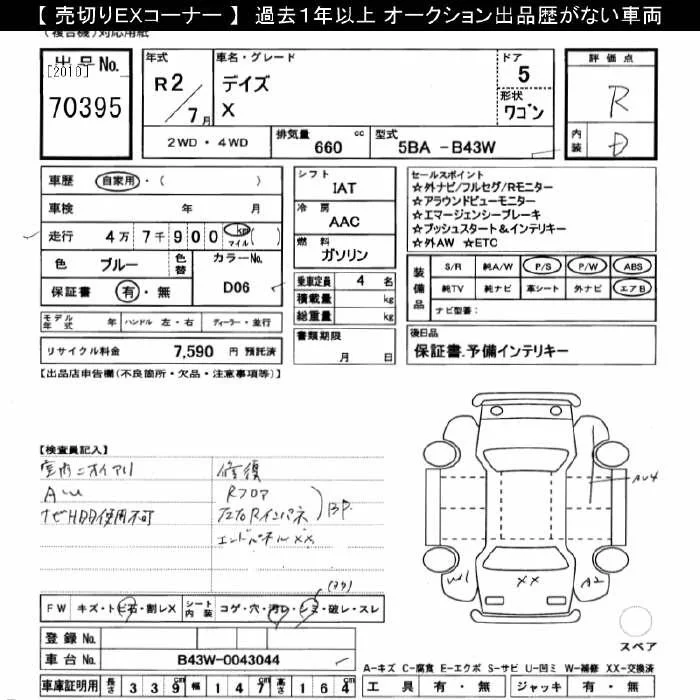 【 売切りEXコーナー 】 過去１年以上 オークション出品歴がない車両
(複合機)対応用紙
出品No.
[2010]
70395
年式
R2/7月
車名・グレード
デイズ
X
ドア
5
形状
ワゴン
評価点
R
内装
D
2WD・4WD
排気量 660 cc
型式 5BA -B43W
車歴 自家用・( )
車検 年 月
走行 4万7千900 km マイル ( )
色 ブルー
色替
カラーNo.
D06
保証書 有・無
モデル年式 年 ハンドル 左・右 ディーラー・並行
リサイクル料金 7,590 円 預託済
シフト
IAT
冷房
AAC
燃料
ガソリン
乗車定員 4 名
積載量 kg
総重量 kg
書類期限
月 日
セールスポイント
☆外ナビ/フルセグ/Rモニター
☆アラウンドビューモニター
☆エマージェンシーブレーキ
☆プッシュスタート&インテリキー
☆外AW ★ETC
装備品
S/R 純A/W P/S P/W ABS
純TV 純ナビ 革シート 外ナビ エアB
ナビ型番：
後日品
保証書.予備インテリキー
【出品店申告欄(不良箇所・欠品・注意事項等)】
【検査員記入】
室内ニオイアリ
ナビHDD使用不可
修復
Rフロア
エンドパネルXX
BP
AU4
W1
XX
A2
FW キズ・トビ石・割レX
シート内装 コゲ・穴・汚レ・シミ・破レ・スレ
登録No.
車台No. B43W-0043044
車庫証明用 長さ 339cm 幅 147cm 高さ 164cm
スペア
A-キズ C-腐食 E-エクボ S-サビ U-凹ミ W-補修 XX-交換済
工具 有・無 ジャッキ 有・無